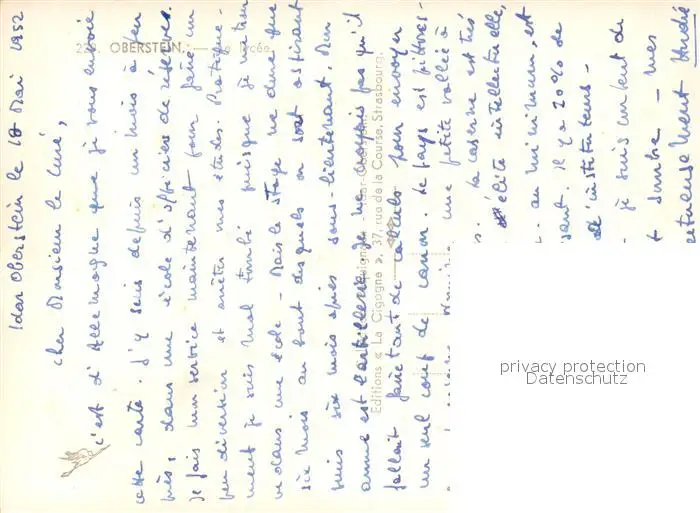 Idar Oberstein le 18 Mai 1952
Cher Monsieur le Curé,
c'est d'Allemagne que je vous envoie
cette carte. J'y suis depuis un mois à peu
près, dans une école d'officiers de réserves.
Je fais mon service maintenant pour faire un
peu diversion et arrêter mes études. Pratique-
ment je suis mal tombé puisque je me trou
ve dans une école - Mais le stage ne dure que
six mois au bout desquels on sort aspirant
puis six mois après sous-lieutenant. Mon
arme est l'artillerie. Je ne croyais pas qu'il
fallait faire tant de calculs pour envoyer
un seul coup de canon. Le pays est pittores-
une petite vallée à
s. La caserne est très
élite intellectuelle,
au minimum, est
sant. Il y a 20% de
d'instituteurs -
je suis content de
t sombre - mes
ectueusement André
22 OBERSTEIN. - Le lycée.
Editions « La Cigogne », 37, rue de la Course, Strasbourg.
privacy protection
Datenschutz